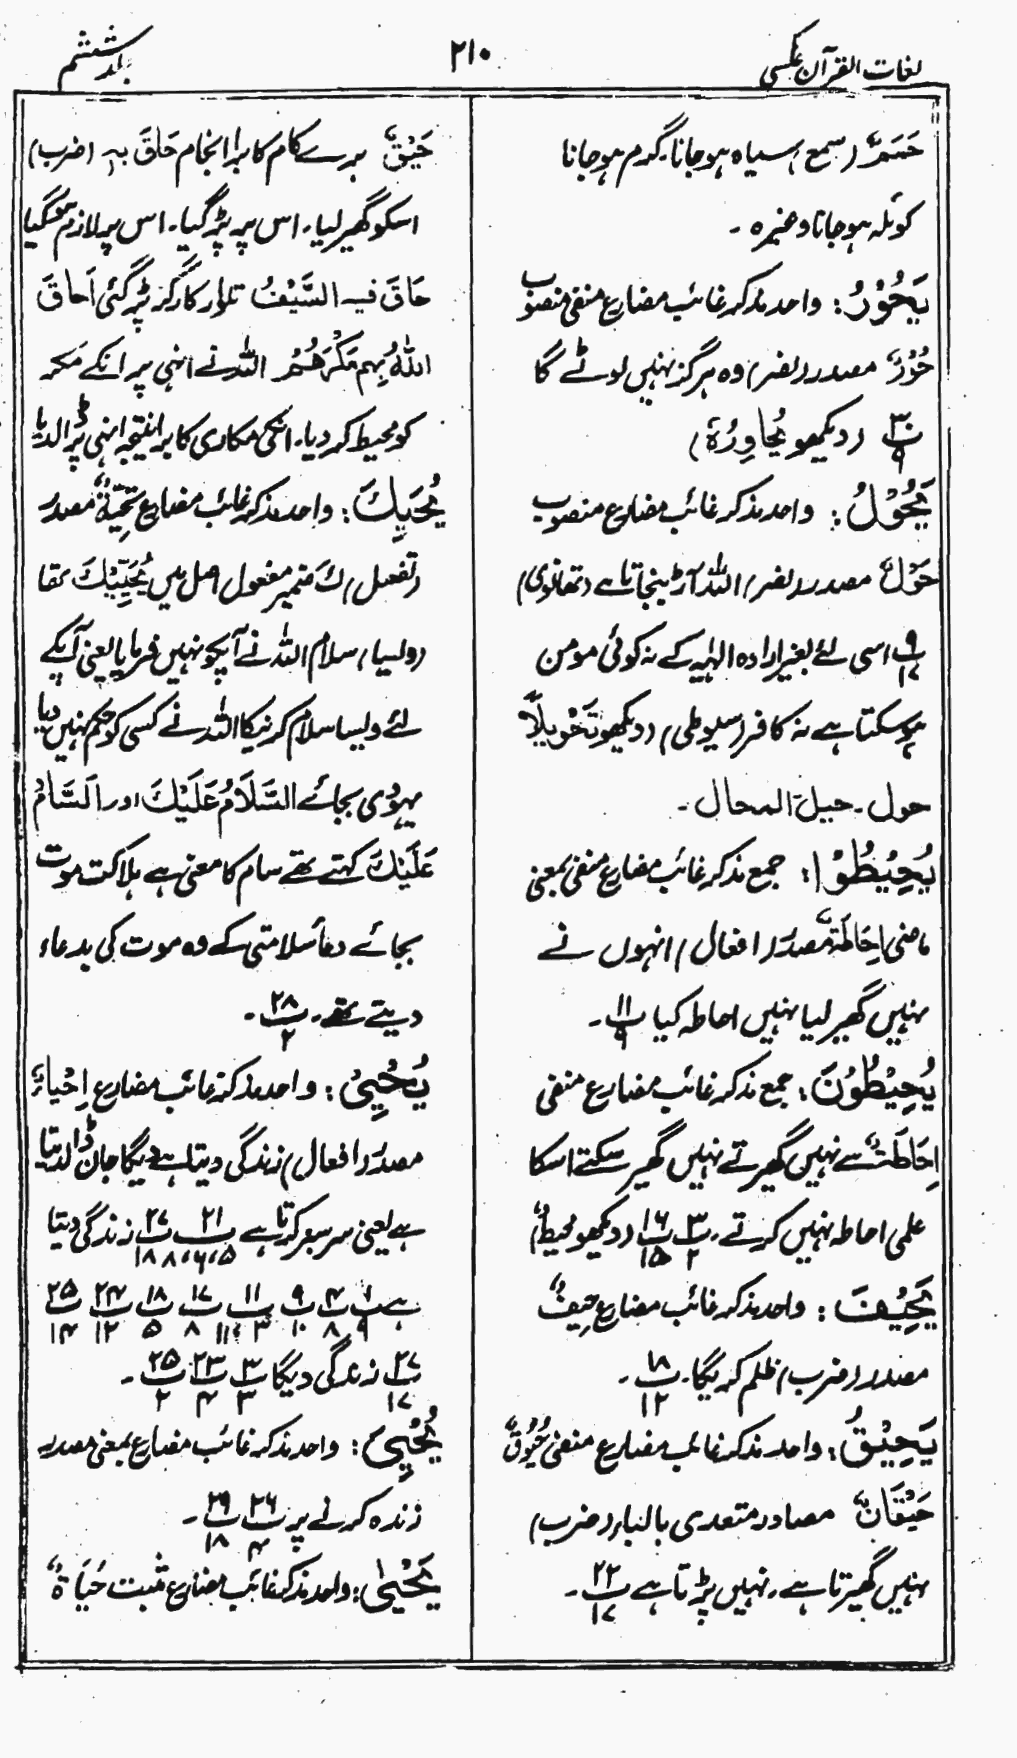 لغات القرآن عکسی
۲۱۰
جلد ششم
حَمَمٌ (سمع) سیاہ ہوجانا۔ گرم ہوجانا
کوئلہ ہوجانا وغیرہ۔
یَحُوْرُ: واحد مذکر غائب مضارع منفی منصوب
حُوْرٌ مصدر (نصر) وہ ہرگز نہیں لوٹے گا
پ۳۰/۹ (دیکھو یُحَاوِرُہٗ)
یَحُوْلُ: واحد مذکر غائب مضارع منصوب
حَوْلٌ مصدر (نصر) اللہ آڑ بنجاتا ہے (تھانوی)
پ۹/۱۷ اسی لئے بغیر ارادہ الٰہیہ کے نہ کوئی مومن
ہوسکتا ہے نہ کافر (سیوطی) (دیکھو تَحْوِیْلًا
حول۔ حیل۔ المحال۔
یُحِیْطُوْا: جمع مذکر غائب مضارع منفی بمعنی
ماضی اِحَاطَۃٌ مصدر (افعال) انہوں نے
نہیں گھیر لیا نہیں احاطہ کیا پ۱۱/۹۔
یُحِیْطُوْنَ: جمع مذکر غائب مضارع منفی
اِحَاطَۃٌ سے نہیں گھیرتے نہیں گھیر سکتے اسکا
علمی احاطہ نہیں کرتے۔ پ۳/۲ پ۱۶/۱۵ (دیکھو محیطٌ)
یَحِیْفَ: واحد مذکر غائب مضارع حَیْفٌ
مصدر (ضرب) ظلم کریگا۔ پ۱۸/۱۲۔
یَحِیْقُ: واحد مذکر غائب مضارع منفی حُیُوْقٌ
حَیَقَانٌ مصادر متعدی بالباء (ضرب)
نہیں گھیرتا ہے۔ نہیں پڑتا ہے پ۲۲/۱۷۔
حَیْقٌ برے کام کا برا انجام حَاقَ بہٖ (ضرب)
اسکو گھیر لیا۔ اس پر پڑ گیا۔ اس پر لازم ہوگیا
حَاقَ فیہ السَّیْفُ تلوار کارگر پڑ گئی اَحَاقَ
اللّٰہُ بِہِم مَکْرَھُمْ اللہ نے انہی پر انکے مکر
کو محیط کردیا۔ انکی مکاری کا برا نتیجہ انہی پر ڈالدیا
یُحَیِّکَ: واحد مذکر غائب مضارع تَحِیَّۃٌ مصدر
(تفعیل) کَ ضمیر مفعول اصل میں یُحَیِّیْکَ تھا
(ویسا) سلام اللہ نے آپکو نہیں فرمایا یعنی آپکے
لئے ویسا سلام کرنیکا اللہ نے کسی کو حکم نہیں دیا
یہودی بجائے السَّلَامُ عَلَیْکَ اور السَّامُ
عَلَیْکَ کہتے تھے سام کا معنی ہے ہلاکت موت
بجائے دعاء سلامتی کے وہ موت کی بدعاء
دیتے تھے۔ پ۲۸/۲۔
یُحْیِیْ: واحد مذکر غائب مضارع اِحْیَاءٌ
مصدر (افعال) زندگی دیتا ہے دیگا جان ڈالدیتا
ہے یعنی سرسبز کرتا ہے پ۲۱/۵،۶،۸ پ۲۷/۱۸ زندگی دیتا
ہے پ۱/۹ پ۴/۸ پ۹/۱۰ پ۱۱/۳،۱۱ پ۱۷/۸ پ۱۸/۵ پ۲۴/۱۲ پ۲۵/۱۴
پ۲۷/۱۷ زندگی دیگا پ۳/۳ پ۲۳/۴ پ۲۵/۲۔
یُحْیِیَ: واحد مذکر غائب مضارع بمعنی مصدر
زندہ کرنے پر پ۲۶/۴ پ۲۹/۱۸۔
یَحْیٰی: واحد مذکر غائب مضارع مثبت حَیَاۃٌ